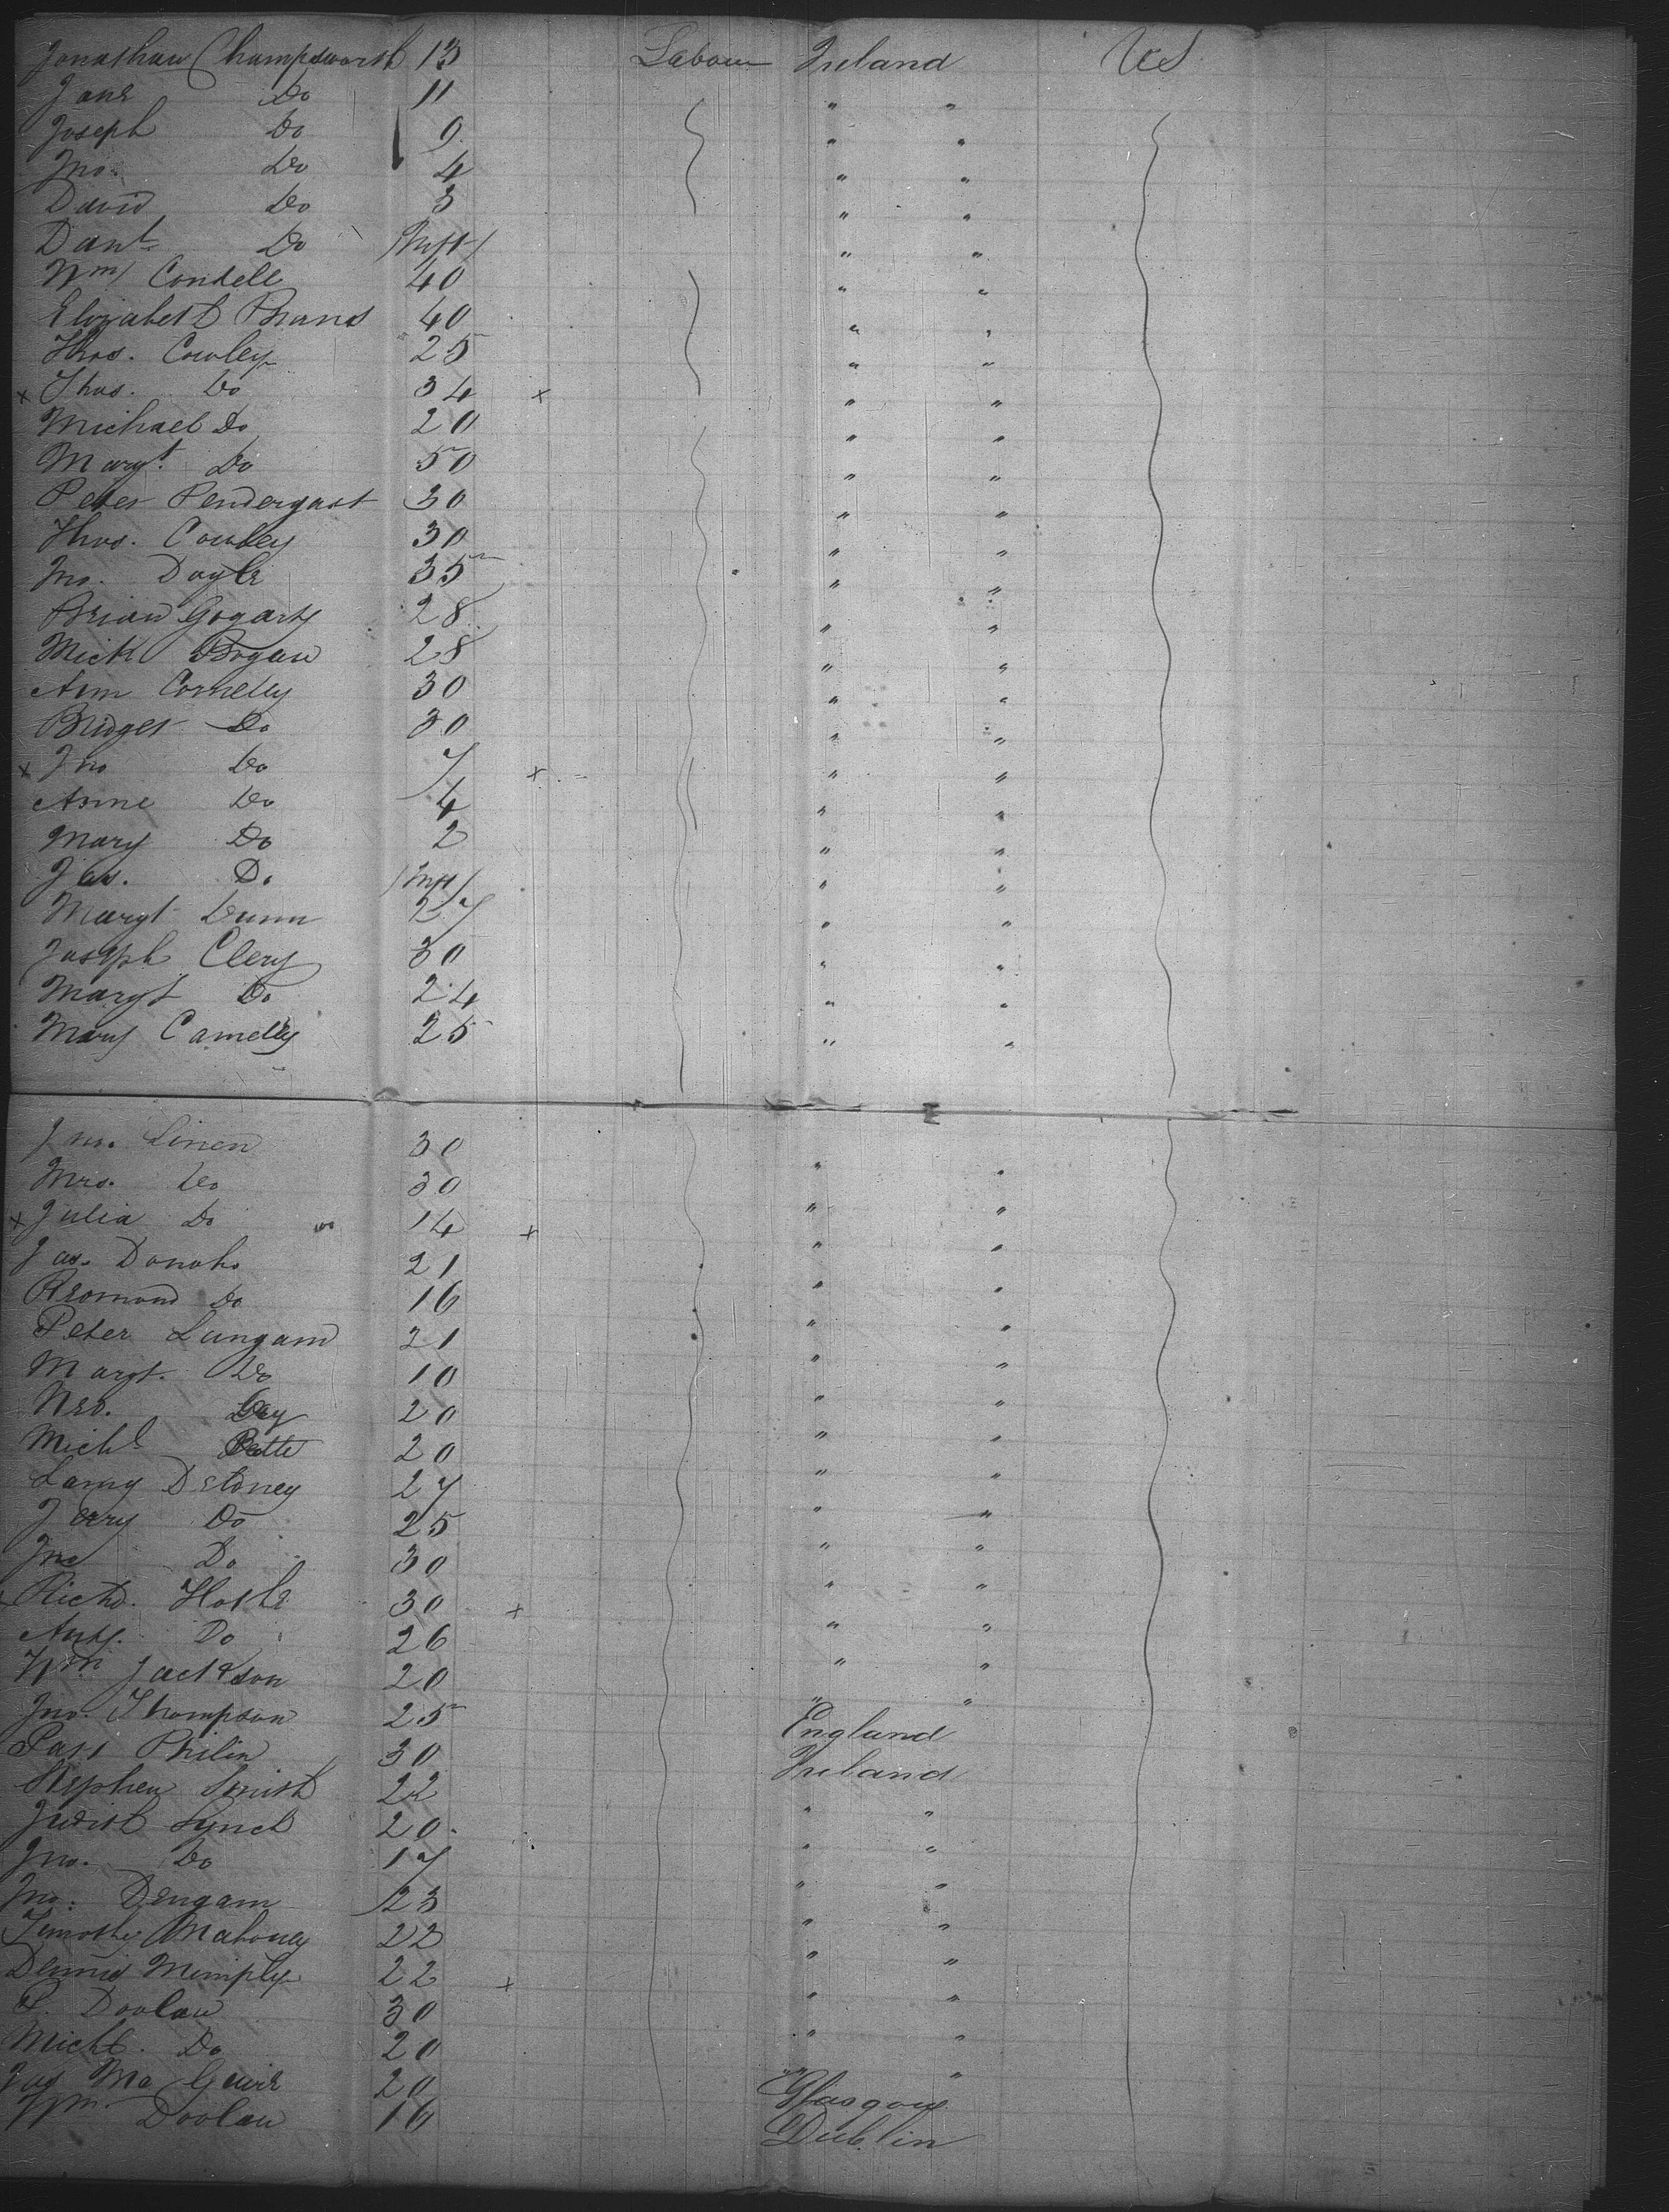 Jonathan Champsworth 13 Labour Ireland US
Jane Do 11 " "
Joseph Do 9 " "
Jno. Do 4 " "
David Do 3 " "
Danl. Do Inft " "
Wm Condell 40 " "
Elizabeth Burns 40 " "
Thos. Cowley 25 " "
x Thos. Do 34 x " "
Michael Do 20 " "
Margt. Do 50 " "
Peter Pendergast 30 " "
Thos. Cowley 30 " "
Jno. Doyle 35 " "
Brian Gogarty 28 " "
Mick Bogan 28 " "
Ann Cornelly 30 " "
Bridget Do 30 " "
x Jno Do 7 x " "
Anne Do 4 " "
Mary Do 2 " "
Jas. Do Inft " "
Margt Dunn 27 " "
Joseph Clery 30 " "
Margt Do 24 " "
Mary Camelly 25 " "
Jno. Linen 30 " "
Mrs. Do 30 " "
x Julia Do 14 x " "
Jas. Donoho 21 " "
Redmond Do 16 " "
Peter Langam 21 " "
Margt. Do 10 " "
20 " "
Michl 20 " "
Larry Deloney 27 " "
Jerry Do 25 " "
Jno Do 30 " "
Richd. 30 x " "
Do 26 " "
Wm Jackson 20 " "
Jno. Thompson 25 England
Patt Philin 30 Ireland
Stephen Smith 22 " "
Judith Lynch 20 " "
Jno. Do 17 " "
Jno. Dengam 23 " "
Timothy Mahoney 22 " "
Dennis 22 x " "
P. Doolan 30 " "
Michl. Do 20 " "
Jas Mc Guire 20 Glasgow
Wm. Doolan 16 Dublin